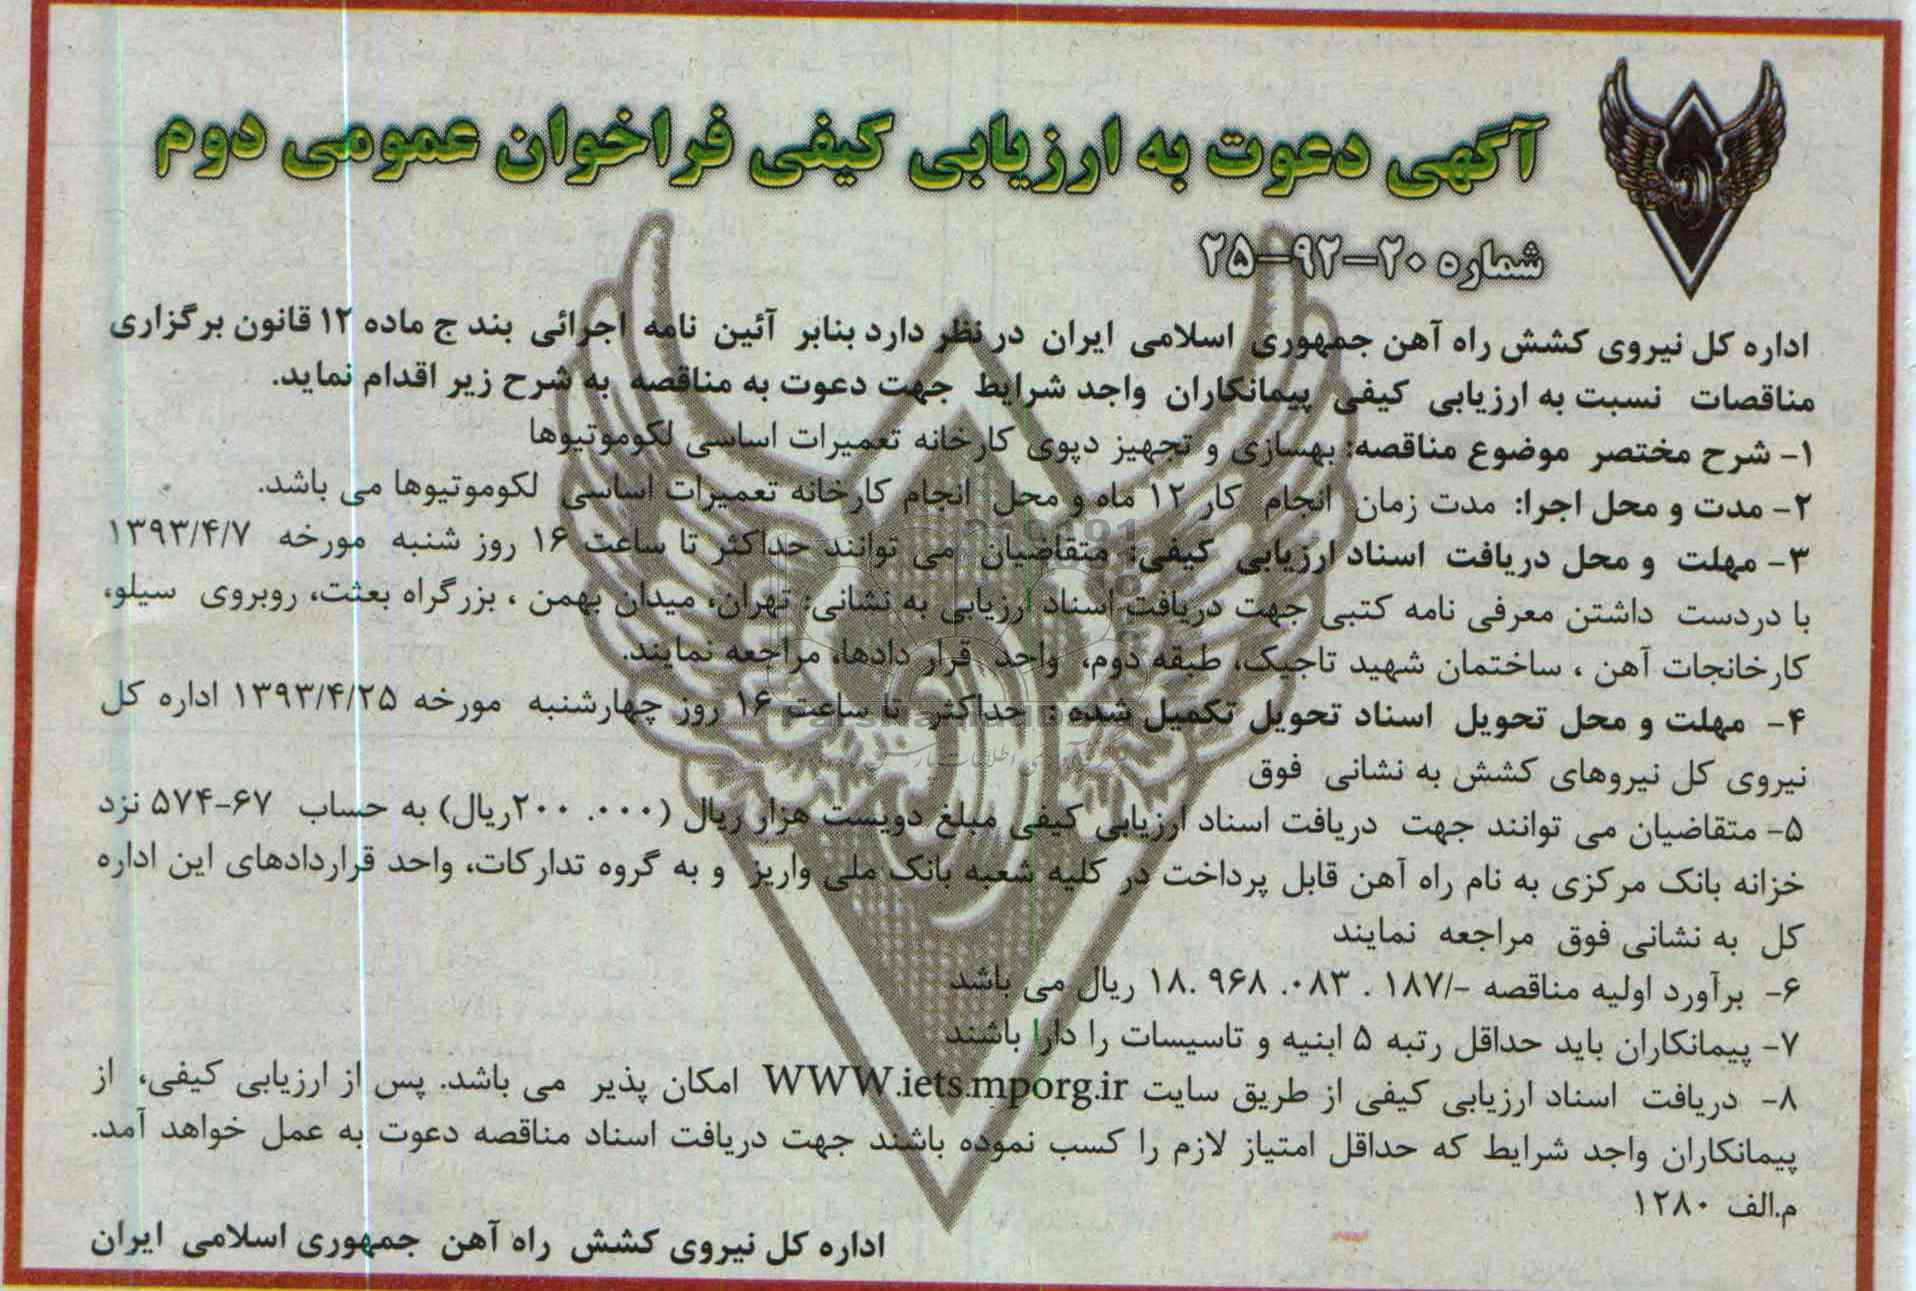 آگهی دعوت به ارزیابی کیفی فراخوان عمومی دوم
شماره ۲۰-۹۲-۲۵
اداره کل نیروی کشش راه آهن جمهوری اسلامی ایران در نظر دارد بنابر آئین نامه اجرائی بند ج ماده ۱۲ قانون برگزاری
مناقصات نسبت به ارزیابی کیفی پیمانکاران واجد شرایط جهت دعوت به مناقصه به شرح زیر اقدام نماید.
۱- شرح مختصر موضوع مناقصه: بهسازی و تجهیز دپوی کارخانه تعمیرات اساسی لکوموتیوها
۲- مدت و محل اجرا: مدت زمان انجام کار ۱۲ ماه و محل انجام کارخانه تعمیرات اساسی لکوموتیوها می باشد.
۳- مهلت و محل دریافت اسناد ارزیابی کیفی: متقاضیان می توانند حداکثر تا ساعت ۱۶ روز شنبه مورخه ۱۳۹۳/۴/۷
با دردست داشتن معرفی نامه کتبی جهت دریافت اسناد ارزیابی به نشانی: تهران، میدان بهمن ، بزرگراه بعثت، روبروی سیلو،
کارخانجات آهن ، ساختمان شهید تاجیک، طبقه دوم، واحد قرار دادها، مراجعه نمایند.
۴- مهلت و محل تحویل اسناد تحویل تکمیل شده : حداکثر تا ساعت ۱۶ روز چهارشنبه مورخه ۱۳۹۳/۴/۲۵ اداره کل
نیروی کل نیروهای کشش به نشانی فوق
۵- متقاضیان می توانند جهت دریافت اسناد ارزیابی کیفی مبلغ دویست هزار ریال (۲۰۰.۰۰۰ریال) به حساب ۶۷-۵۷۴ نزد
خزانه بانک مرکزی به نام راه آهن قابل پرداخت در کلیه شعبه بانک ملی واریز و به گروه تدارکات، واحد قراردادهای این اداره
کل به نشانی فوق مراجعه نمایند
۶- برآورد اولیه مناقصه -/۱۸۷ . ۰۸۳. ۹۶۸ .۱۸ ریال می باشد
۷- پیمانکاران باید حداقل رتبه ۵ ابنیه و تاسیسات را دارا باشند
۸- دریافت اسناد ارزیابی کیفی از طریق سایت WWW.iets.mporg.ir امکان پذیر می باشد. پس از ارزیابی کیفی، از
پیمانکاران واجد شرایط که حداقل امتیاز لازم را کسب نموده باشند جهت دریافت اسناد مناقصه دعوت به عمل خواهد آمد.
م.الف ۱۲۸۰
اداره کل نیروی کشش راه آهن جمهوری اسلامی ایران